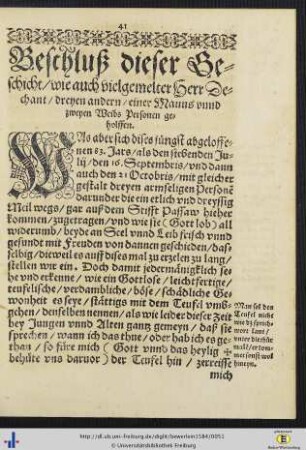 41
Beschluß dieser Ge-
schicht/ wie auch vielgemelter Herr De-
chant/ dreyen andern/ einer Manns vnnd
zweyen Weibs Personen ge-
holffen.
WAs aber sich dises jüngst abgeloffe-
nen 83. Jars/ als den siebenden Ju-
lij/ den 16. Septembris/ vnd dann
auch den 21 Octobris/ mit gleicher
gestalt dreyen armseligen Personē
darunder die ein etlich vnd dreyssig
Meil wegs/ gar auß dem Stifft Passaw hieher
kommen/ zugetragen/ vnd wie sie (Gott lob) all
widerumb/ beyde an Seel vnnd Leib frisch vnnd
gesundt mit Freuden von dannen geschieden/ das-
selbig/ dieweil es auff dises mal zu erzelen zu lang/
stellen wir ein. Doch damit jedermänigklich se-
he vnd erkenne/ wie ein Gottlose/ leichtfertige/
teufelische/ verdambliche/ böse/ schädliche Ge
wonheit es seye/ stättigs mit dem Teufel vmb-
gehen/ denselben nennen/ als wie leider dieser Zeit
bey Jungen vnnd Alten gantz gemeyn/ daß sie
sprechen/ wann ich das thue/ oder hab ich es ge-
than/ so füre mich (Gott vnnd das heylig ✠
behüte vns daruor) der Teufel hin/ zerreisse
mich
Man sol den
Teufel nicht
wie dz sprich-
wort laut/
vnter die thür
mahlen/ er kom-
met sonst wol
hineyn.
http://dl.ub.uni-freiburg.de/diglit/bewerlein1584/0051
© Universitätsbibliothek Freiburg